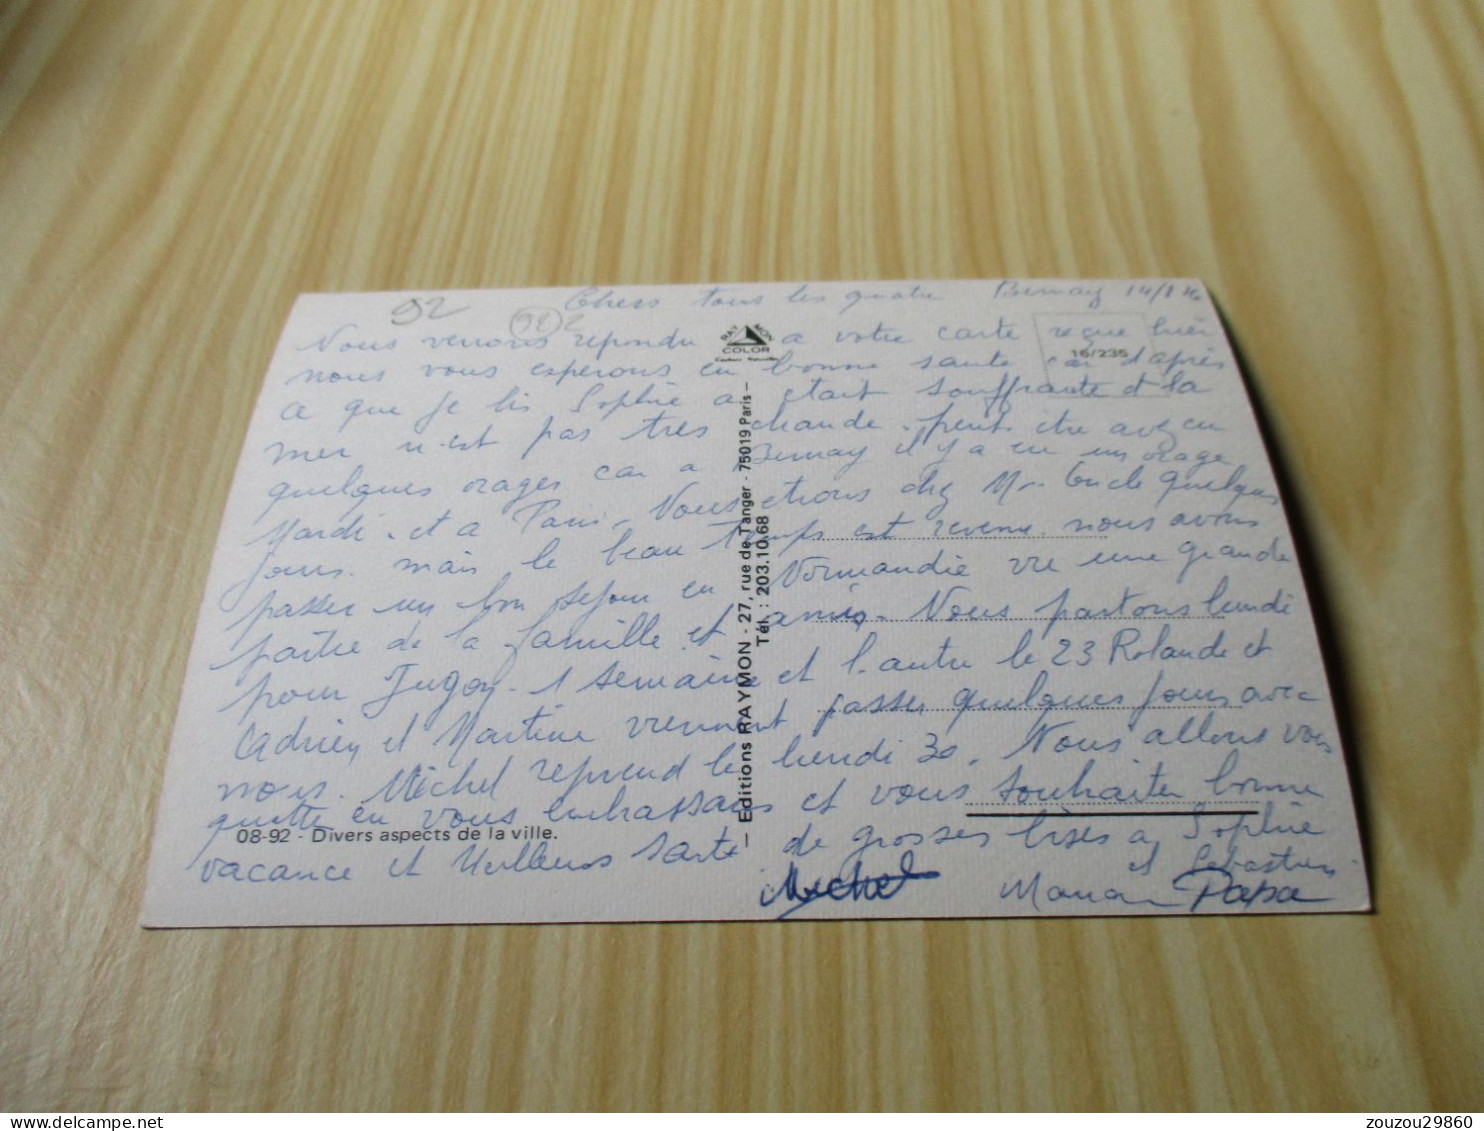 92
92 2
Chers tous les quatre Bernay 14/8
Nous venons repondu a votre carte reçue hier
nous vous esperons en bonne sante car d'après
ce que je lis Sophie a etait souffrante et la
mer n'est pas tres chaude. peut. être avez eu
quelques orages car a Bernay il y a eu un orage
Mardi. et a Paris. Nous etions chez Mr Quelques
jours. mais le beau temps est revenu. nous avons
passer un bon sejour en Normandie vu une grande
partie de la famille et amis. Nous partons lundi
pour Jugon. 1 semaine et l'autre le 23 Rolande et
Cadrien et Martine viennent passer quelques jours avec
nous. Michel reprend le lundi 30. Nous allons vous
quitte en vous embrassans et vous souhaiter bonne
vacance et Meilleures Sante de grosses bises a Sophie
et Sebastien
Michel Maman Papa
RAYMON
COLOR
Couleurs Naturelles
16/235
— Editions RAYMON - 27, rue de Tanger - 75019 Paris —
Tél. : 203.10.68
08-92 - Divers aspects de la ville.
zouzou29860